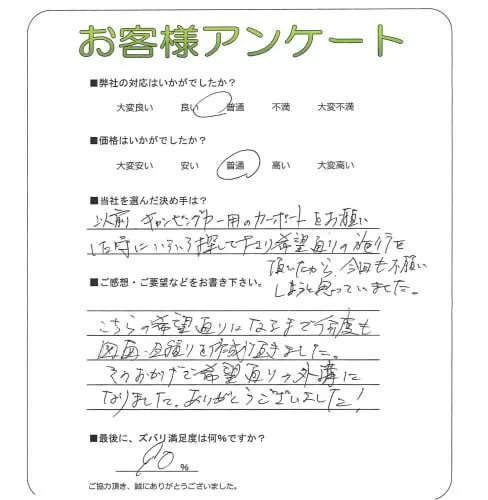 お客様アンケート
■弊社の対応はいかがでしたか？
大変良い 良い 普通 不満 大変不満
■価格はいかがでしたか？
大変安い 安い 普通 高い 大変高い
■当社を選んだ決め手は？
以前 キャンピングカー用のカーポートをお願い
した時にいろいろ探して下さり希望通りの施行を
頂いたから、今回もお願い
しようと思っていました。
■ご感想・ご要望などをお書き下さい。
こちらの希望通りになるまで何度も
図面・見積りを作成頂きました。
そのおかげで希望通りの外構に
なりました。ありがとうございました！
■最後に、ズバリ満足度は何％ですか？
％
ご協力頂き、誠にありがとうございました。